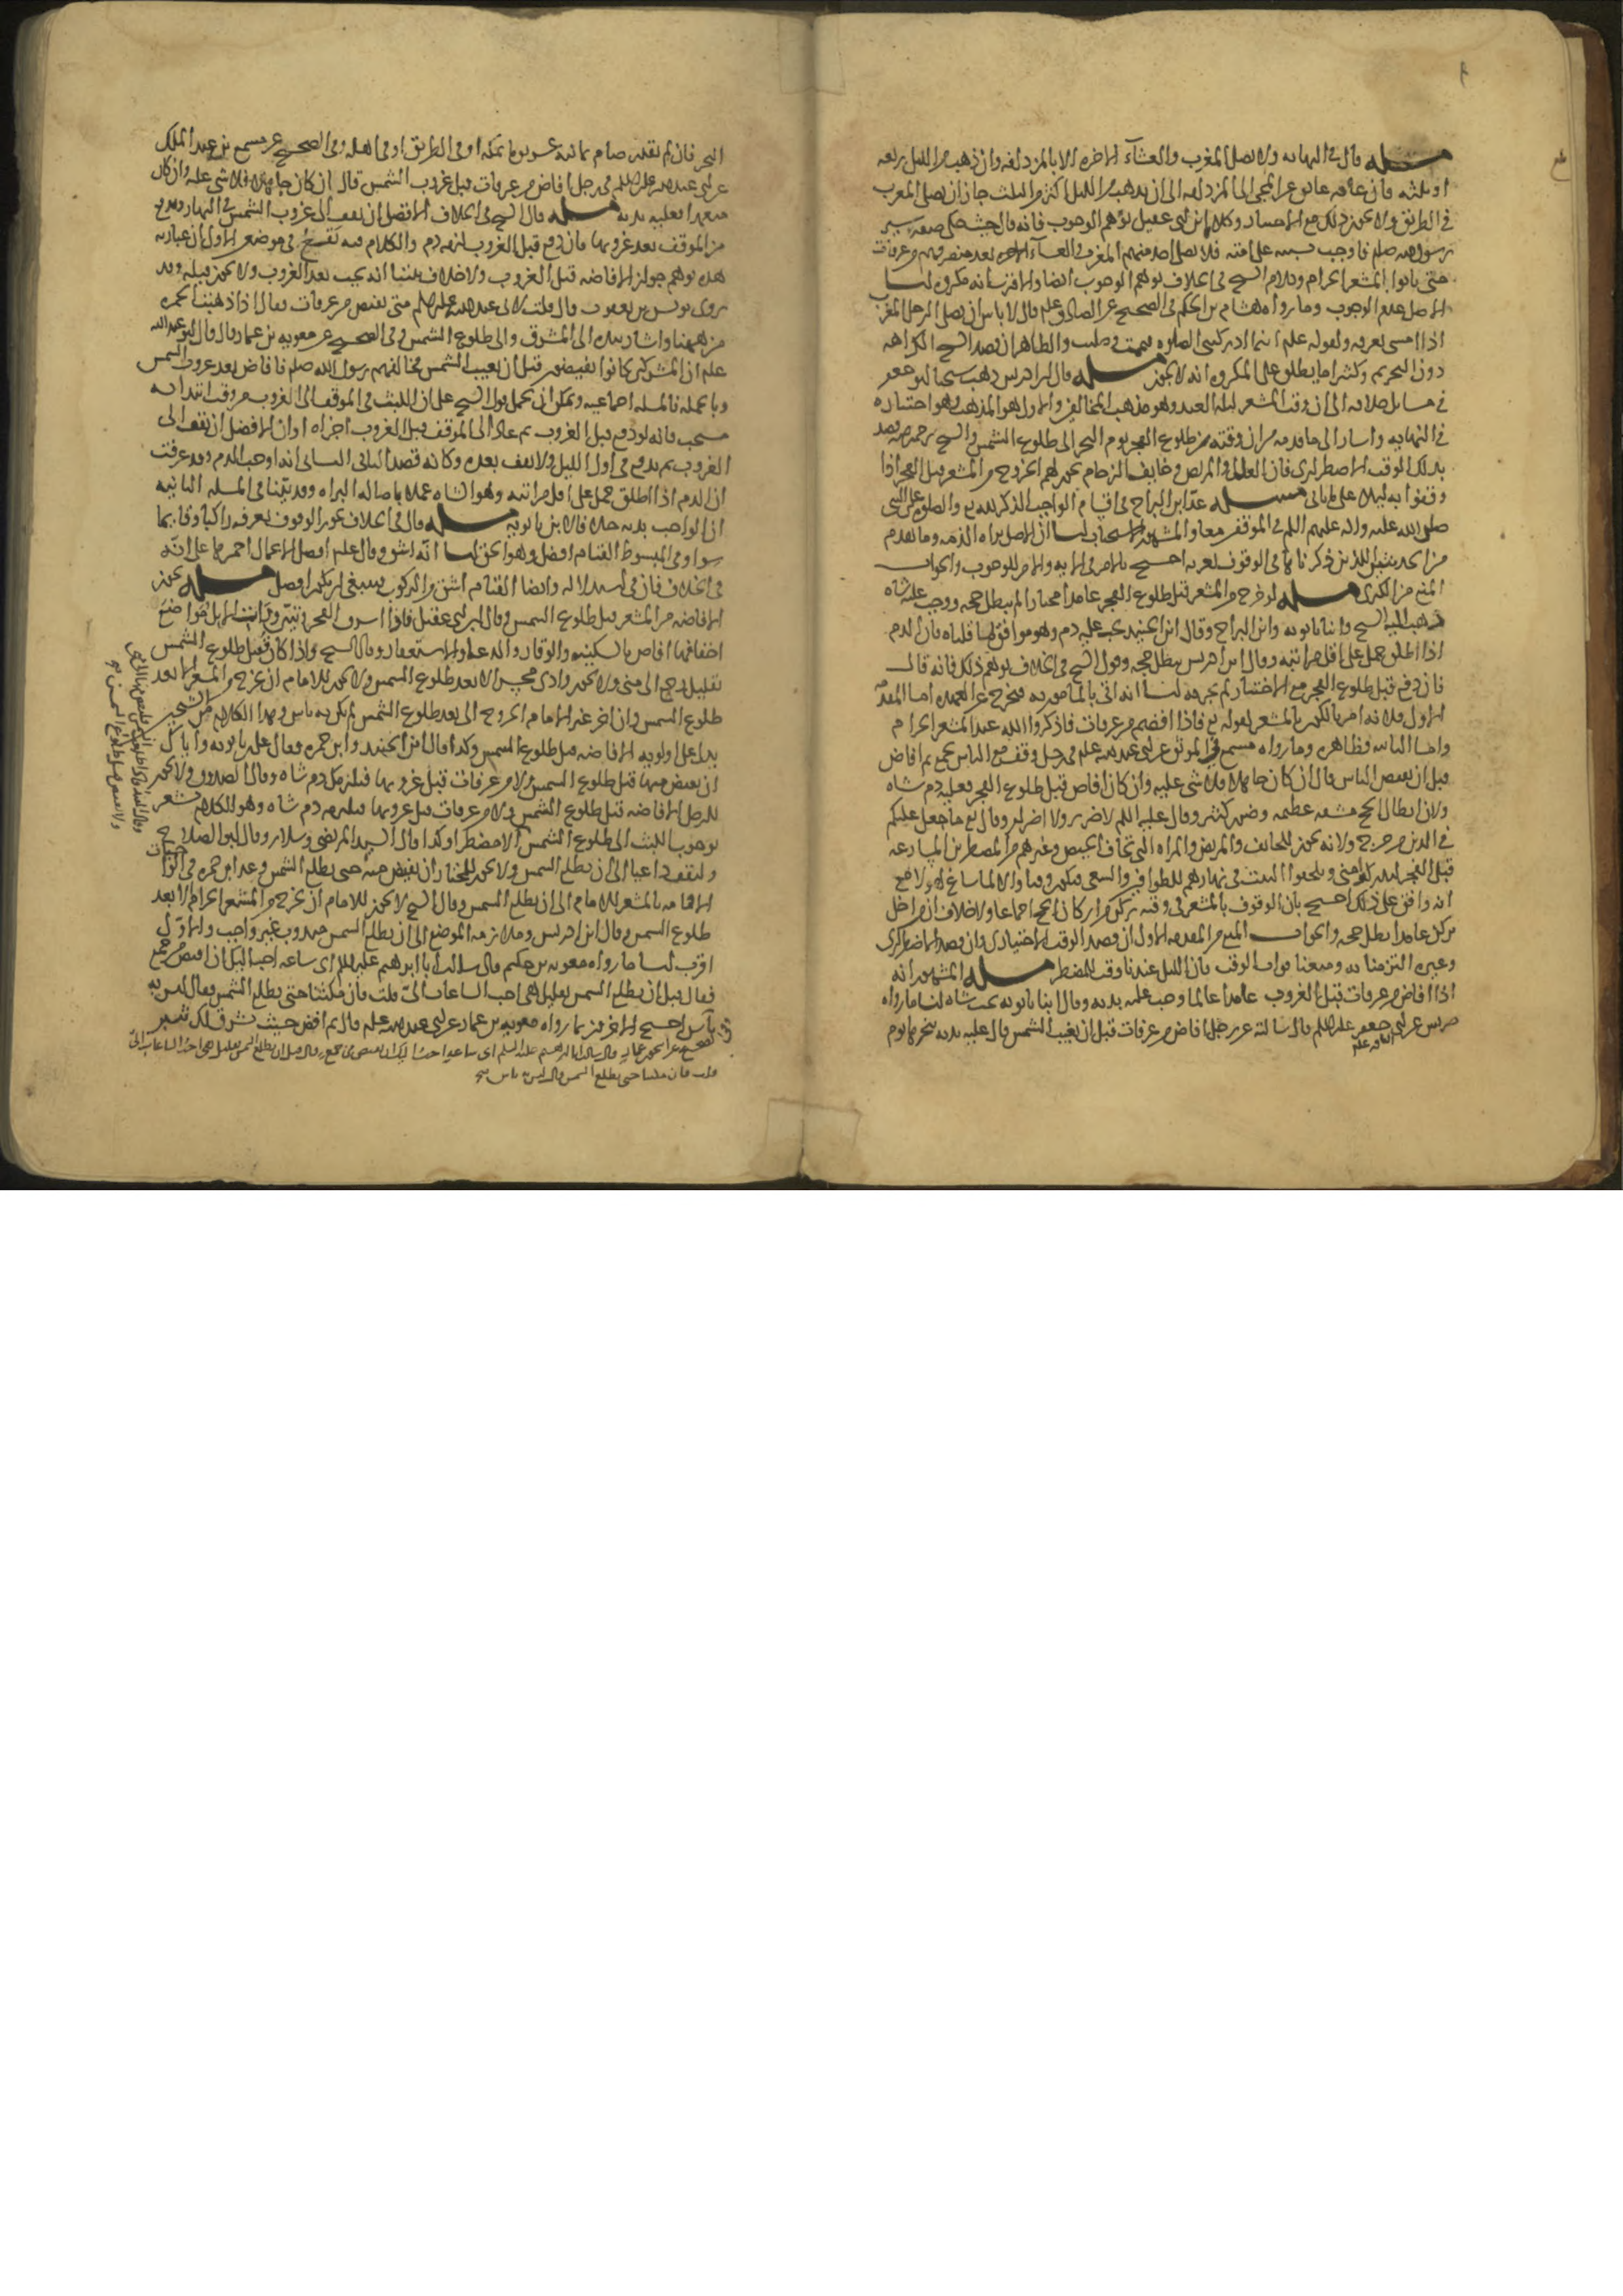 مسئله قال في النهايه ولا يصل المغرب والعشآء الاخره الا بالمزدلفه وان ذهب من الليل ربعه
او ثلثه فان عاقه عائق عن المجى الى المزدلفه الى ان يذهب من الليل اكثر من الثلث جاز ان يصلى المغرب
في الطريق ولا يجوز ذلك مع الاختيار وكلام ابن ابى عقيل يوهم الوجوب فانه قال حيث حكى صفة سير
رسول الله صلم فاوجب بسنته على امته فلا يصلى احد منهم المغرب والعشآء الاخره بعد منصرفهم من عرفات
حتى ياتوا المشعر الحرام وكلام الشيخ في الخلاف يوهم الوجوب ايضا والاقرب انه مكروه لنا
الاصل عدم الوجوب وما رواه هشام بن الحكم في الصحيح عن الصادق علم قال لا باس ان يصلى الرجل المغرب
اذا امسى بعرفه ولقوله علم اينما ادركتنى الصلوه تيممت وصليت والظاهر ان قصد الشيخ الكراهه
دون التحريم وكثيرا ما يطلق على المكروه انه لا يجوز مسئله قال ابن ادريس ذهب شيخنا ابو جعفر
في مسائل خلافه الى ان وقت المشعر ليلة العيد وهو مذهب المخالفين والاول هو المذهب وهو اختياره
في النهايه واشار الى ما قدمه من ان وقته من طلوع الفجر يوم النحر الى طلوع الشمس والشيخ رحمه الله قصد
بذلك الوقت الاضطرارى فان العليل والمريض وخايف الزحام يجوز لهم الخروج من المشعر قبل الفجر اذا
وقفوا به ليلا على ما ياتى مسئله عد ابن البراج في اقسام الواجب الذكر لله تع والصلوة على النبى
صلى الله عليه واله عليهم السلم في الموقفين معا والمشهور الاستحباب لنا ان الاصل براه الذمه وما تقدم
من الحديثين اللذين ذكرناهما في الوقوف بعرفه احتج بالامر في الايه والامر للوجوب والجواب
المنع من الكبرى مسئله لو خرج من المشعر قبل طلوع الفجر عامدا مختارا لم يبطل حجه ووجب عليه شاه
ذهب اليه الشيخ وابنا بابويه وابن البراج وقال ابن الجنيد يجب عليه دم وهو موافق لما قلناه فان الدم
اذا اطلق حمل على اقل مراتبه وقال ابن ادريس يبطل حجه وقول الشيخ في الخلاف يوهم ذلك فانه قال
فان دفع قبل طلوع الفجر مع الاختيار لم يجزه لنا انه اتى بالمامور به فيخرج عن العهده اما المقدمه
الاولى فلانه امر بالكون بالمشعر لقوله تع فاذا افضتم من عرفات فاذكروا الله عند المشعر الحرام
واما الثانيه فظاهره وما رواه مسمع في الموثق عن ابى عبد الله علم في رجل وقف مع الناس بجمع ثم افاض
قبل ان يفيض الناس قال ان كان جاهلا فلا شى عليه وان كان افاض قبل طلوع الفجر فعليه دم شاه
ولان ابطال الحج مشقه عظيمه وضرر كثير وقال عليه السلم لا ضرر ولا اضرار وقال تع ما جعل عليكم
في الدين من حرج ولانه يجوز للخايف والمريض والمراه التى تخاف الحيض وغيرهم من المضطرين المبادره
انه وافق على ذلك احتج بان الوقوف بالمشعر في وقته ركن من اركان الحج اجماعا ولا خلاف ان من اخل
بركن عامدا بطل حجه والجواب المنع من المقدمه الاولى ان قصد الوقت الاختيارى وان قصد الاضطرارى
وغيره التزمنا به ومنعنا فوات الوقت فان الليل عندنا وقت المضطر مسئله المشهور انه
اذا افاض من عرفات قبل الغروب عامدا عالما وجب عليه بدنه وقال ابنا بابويه يجب شاه لنا ما رواه
ضريس عن ابى جعفر عليه السلم قال سالته عن رجل افاض من عرفات قبل ان يغيب الشمس قال عليه بدنه ينحرها يوم
النحر فان لم يقدر صام ثمانيه عشر يوما بمكه او في الطريق او في اهله وفي الصحيح عن مسمع بن عبد الملك
عن ابى عبد الله عليه السلم في رجل افاض من عرفات قبل غروب الشمس قال ان كان جاهلا فلا شى عليه وان كان
متعمدا فعليه بدنه مسئله قال الشيخ في الخلاف الافضل ان يقف الى غروب الشمس في النهار ويدفع
من الموقف بعد غروبها فان دفع قبل الغروب لزمه دم والكلام فيه يقع في موضعين الاول ان عبارته
هذه توهم جواز الافاضه قبل الغروب ولا خلاف بيننا انه يجب بعد الغروب ولا يجوز قبله وقد
روى يونس بن يعقوب قال قلت لابى عبد الله عليه السلم متى نفيض من عرفات فقال اذا ذهبت الحمره
من ههنا واشار بيده الى المشرق والى طلوع الشمس وفي الصحيح عن معويه بن عمار قال قال ابو عبد الله
علم ان المشركين كانوا يفيضون قبل ان يغيب الشمس فخالفهم رسول الله صلم فافاض بعد غروب الشمس
وبالجمله فالمسئله اجماعيه ويمكن ان يحمل قول الشيخ على ان اللبث في الموقف الى الغروب من وقت ابتدائه
مستحب فانه لو دفع قبل الغروب ثم عاد الى الموقف قبل الغروب اجزاه او ان الافضل ان يقف الى
الغروب ثم يدفع في اول الليل ولا يقف بعده وكانه قصد الثانى الثانى انه اوجب الدم وقد عرفت
ان الدم اذا اطلق حمل على اقل مراتبه وهو الشاه عملا باصاله البراه وقد بينا في المسئله الثانيه
ان الواجب بدنه خلافا لابن بابويه مسئله قال في الخلاف يجوز الوقوف بعرفه راكبا وقايما
سوا وفي المبسوط القيام افضل وهو الحق لنا انه اشق وقال علم افضل الاعمال احمزها على انه
في الخلاف قال في استدلاله وايضا القيام اشق من الركوب فينبغى ان يكون افضل مسئله يجوز
الافاضه من المشعر قبل طلوع الشمس وقال ابن ابى عقيل فاذا اشرق الفجر وتبين ورات الابل مواضع
اخفافها افاض بالسكينه والوقار والدعاء والاستغفار وقال الشيخ واذا كان قبل طلوع الشمس
بقليل رجع الى منى ولا يجوز وادى محسر الا بعد طلوع الشمس ولا يجوز للامام ان يخرج من المشعر الا بعد
طلوع الشمس وان اخر غير الامام الخروج الى بعد طلوع الشمس لم يكن به باس وهذا الكلام من الشيخ
يدل على اولويه الافاضه قبل طلوع الشمس وكذا قال ابن الجنيد وابن حمزه وقال على بن بابويه واياك
ان تفيض منها قبل طلوع الشمس ولا من عرفات قبل غروبها فيلزمك دم شاه وقال الصدوق ولا يجوز
للرجل الافاضه قبل طلوع الشمس ولا من عرفات قبل غروبها فيلزمه دم شاه وهو الكلام يشعر
بوجوب اللبث الى طلوع الشمس الا مضطرا وكذا قال السيد المرتضى وسلار وقال ابو الصلاح
وليقف داعيا الى ان يطلع الشمس ولا يجوز للمختار ان يفيض منه حتى يطلع الشمس وعد ابن حمزه في الواجبات
الاقامه بالمشعر للامام الى ان يطلع الشمس وقال الشيخ لا يجوز للامام ان يخرج من المشعر الحرام الا بعد
طلوع الشمس وقال ابن ادريس وملازمة الموضع الى ان يطلع الشمس مندوب غير واجب والاول
اقرب لنا ما رواه معويه بن حكيم قال سالت ابا ابرهيم عليه السلم اى ساعه احب اليك ان افيض من جمع
فقال قبل ان يطلع الشمس بقليل هى احب الساعات الى قلت فان مكثنا حتى يطلع الشمس فقال ليس به
باس احتج الاخرون بما رواه معويه بن عمار عن ابى عبد الله علم قال ثم افض حيث يشرق لك ثبير
قلت فان مكثنا حتى يطلع الشمس قال ليس به باس صح